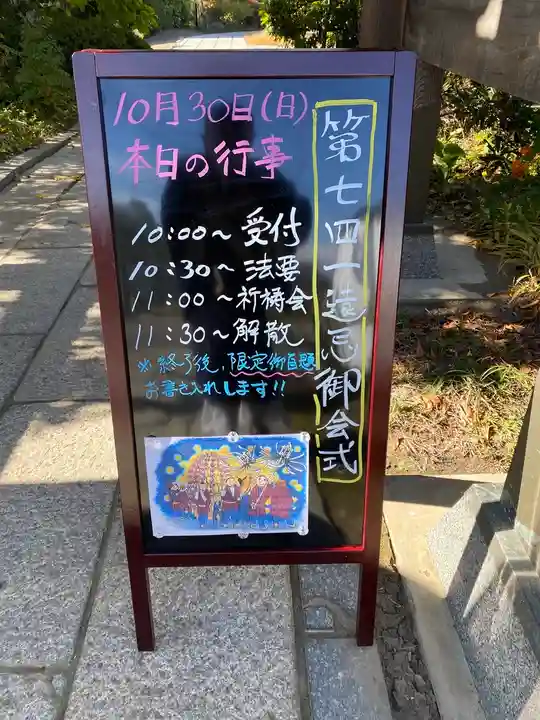 10月30日(日)
本日の行事
10:00～受付
10:30～法要
11:00～祈祷会
11:30～解散
※終了後、限定御首題
お書き入れします!!
第七四一遠忌御会式